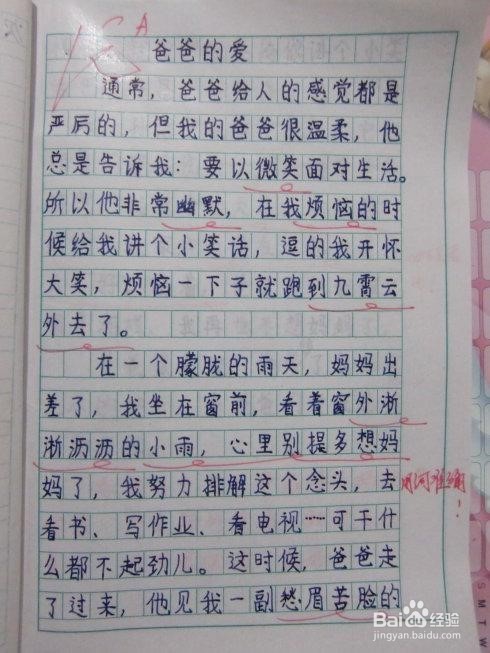 A
爸爸的爱
通常，爸爸给人的感觉都是
严厉的，但我的爸爸很温柔，他
总是告诉我：要以微笑面对生活。
所以他非常幽默，在我烦恼的时
候给我讲个小笑话，逗的我开怀
大笑，烦恼一下子就跑到九霄云
外去了。
在一个朦胧的雨天，妈妈出
差了，我坐在窗前，看着窗外淅
淅沥沥的小雨，心里别提多想妈
妈了，我努力排解这个念头，去
用词准确！
看书、写作业、看电视……可干什
么都不起劲儿。这时候，爸爸走
了过来，他见我一副愁眉苦脸的
Baidu经验
jingyan.baidu.com
S M T W